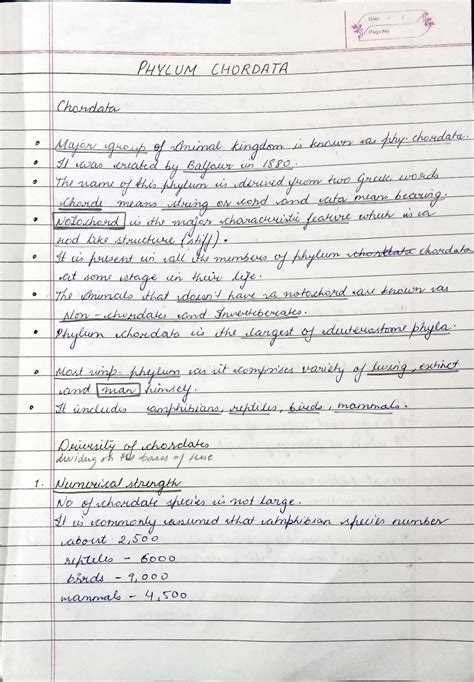 Date / /
Page No.
PHYLUM CHORDATA
Chordata
• Major group of animal kingdom is known as phy. chordata.
• It was created by Balfour in 1880.
• The name of this phylum is derived from two Greek words
chorde means string or cord and ata means bearing.
• Notochord is the major characteristic feature which is a
rod like structure (stiff).
• It is present in all the members of phylum chordata chordata
at some stage in their life.
• The animals that doesn't have a notochord are known as
Non-chordates and Invertebrates.
• Phylum chordata is the largest of deuterostome phyla.
• Most imp. phylum as it comprises variety of living, extinct
and man himself.
• It includes amphibians, reptiles, birds, mammals.
Diversity of chordates
dividing on the bases of these
1. Numerical strength
No of chordate species is not large.
It is commonly assumed that amphibian species number
about 2,500
reptiles - 6000
birds - 9,000
mammals - 4,500